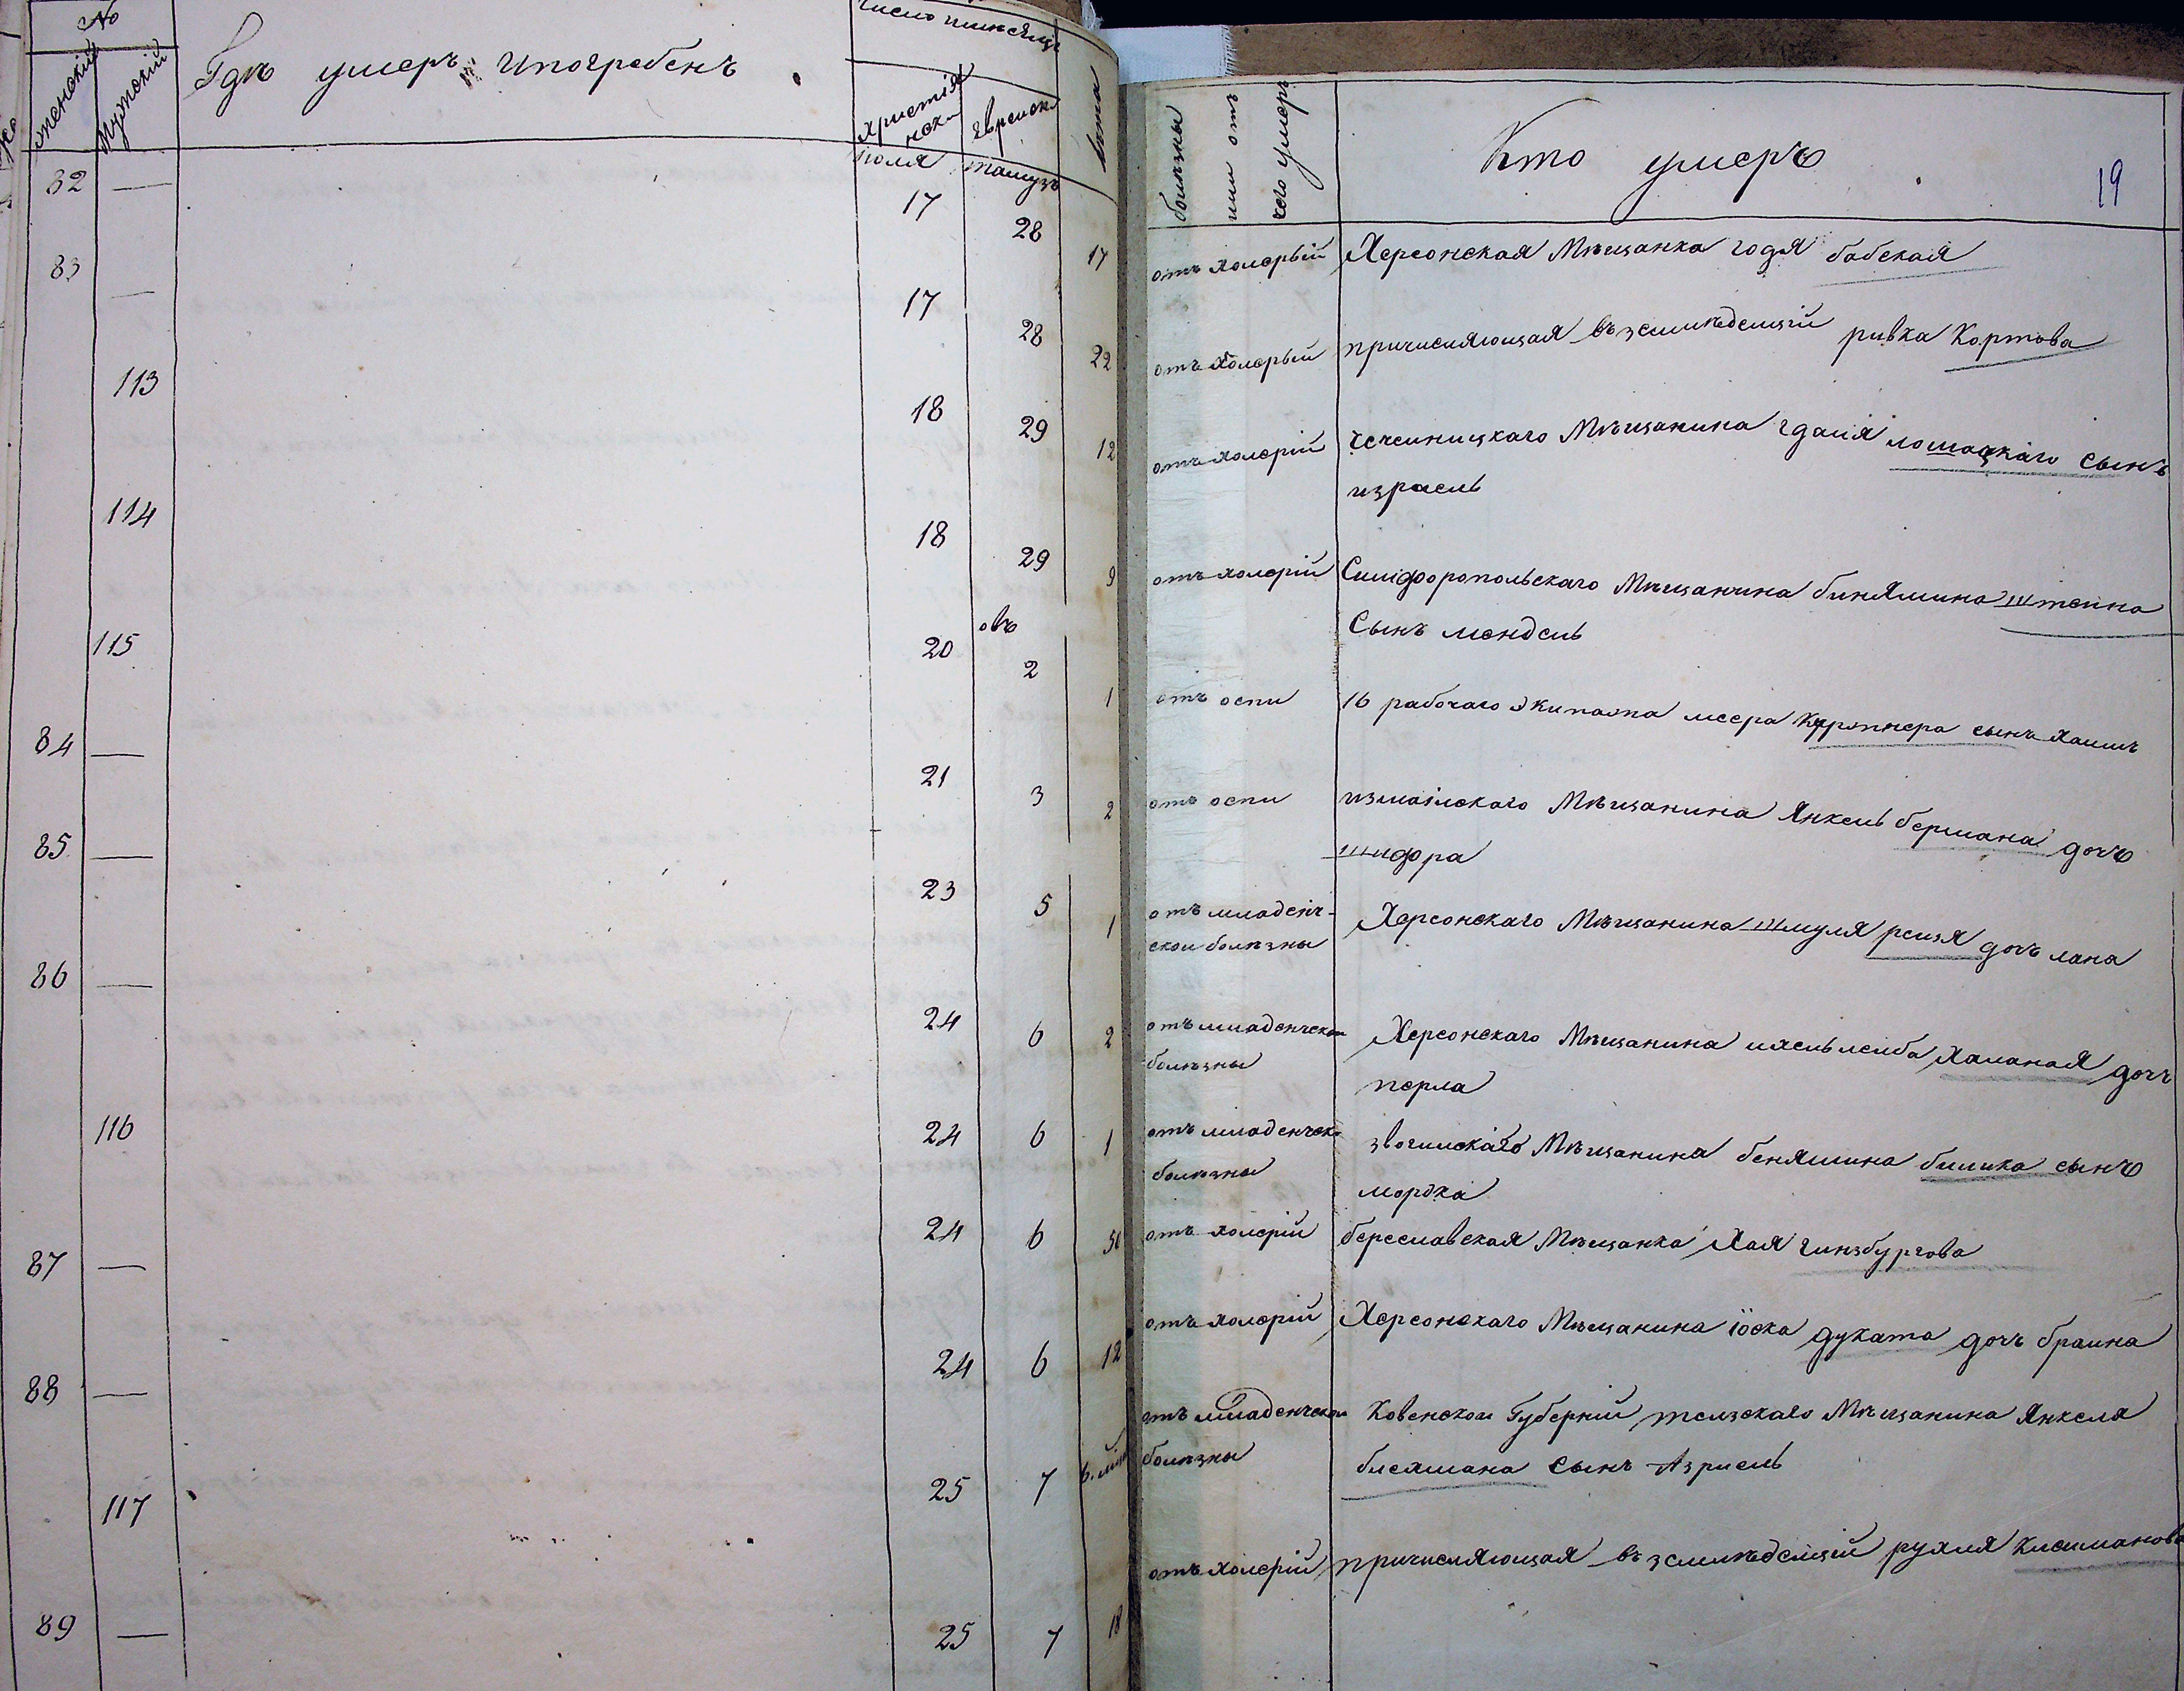 №
женскій
мужскій
Гдѣ умеръ ипогребенъ
число и мѣсяцъ
христіянск.
еврейск.
лѣта
болѣзны
или отъ
чего умеръ
Кто умеръ
19
іюля тамузъ
82 — 17 28 17 отъ холерый Херсонская Мѣщанка годя бабская
83 — 17 28 22 отъ холерый причисляющая въ земледелцій ривка Кортова
113 18 29 12 отъ холерій чечелницкаго Мѣщанина гдалія лошацкаго Сынъ
израель
114 18 29 9 отъ холерій Симферопольскаго Мѣщанина бинямина штейна
Сынъ мендель
овъ
115 20 2 1 отъ оспи 16 рабочаго экипажа меера Куртнера сынъ хаимъ
84 — 21 3 2 отъ оспи измаилскаго Мѣщанина Янкель бермана дочъ
шифра
85 — 23 5 1 отъ младенч-
ской болѣзны Херсонскаго Мѣщанина шмуля рейзя дочъ хана
86 — 24 6 2 отъ младенческой
болѣзны Херсонскаго Мѣщанина лейба дочъ
перла
116 24 6 1 отъ младенческ.
болѣзны Мѣщанина бенямина билика сынъ
мордка
87 — 24 6 50 отъ холерій береславская Мѣщанка Хая гинзбургова
88 — 24 6 12 отъ холерій Херсонскаго Мѣщанина іоска дуката дочъ браина
117 25 7 6. мѣс отъ младенческой
болѣзны Ковенской Губерніи телзскаго Мѣщанина Янкела
блехмана Сынъ Азриель
89 — 25 7 18 отъ холерій причисляющая въ земледелцій рухля Клейманова